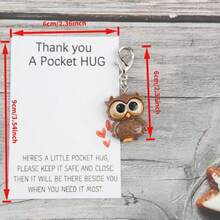 6cm/2.36inch
Thank you
A Pocket HUG
9cm/3.54inch
6cm/2.36inch
HERE'S A LITTLE POCKET HUG,
PLEASE KEEP IT SAFE AND CLOSE,
THEN IT WILL BE THERE BESIDE YOU
WHEN YOU NEED IT MOST.